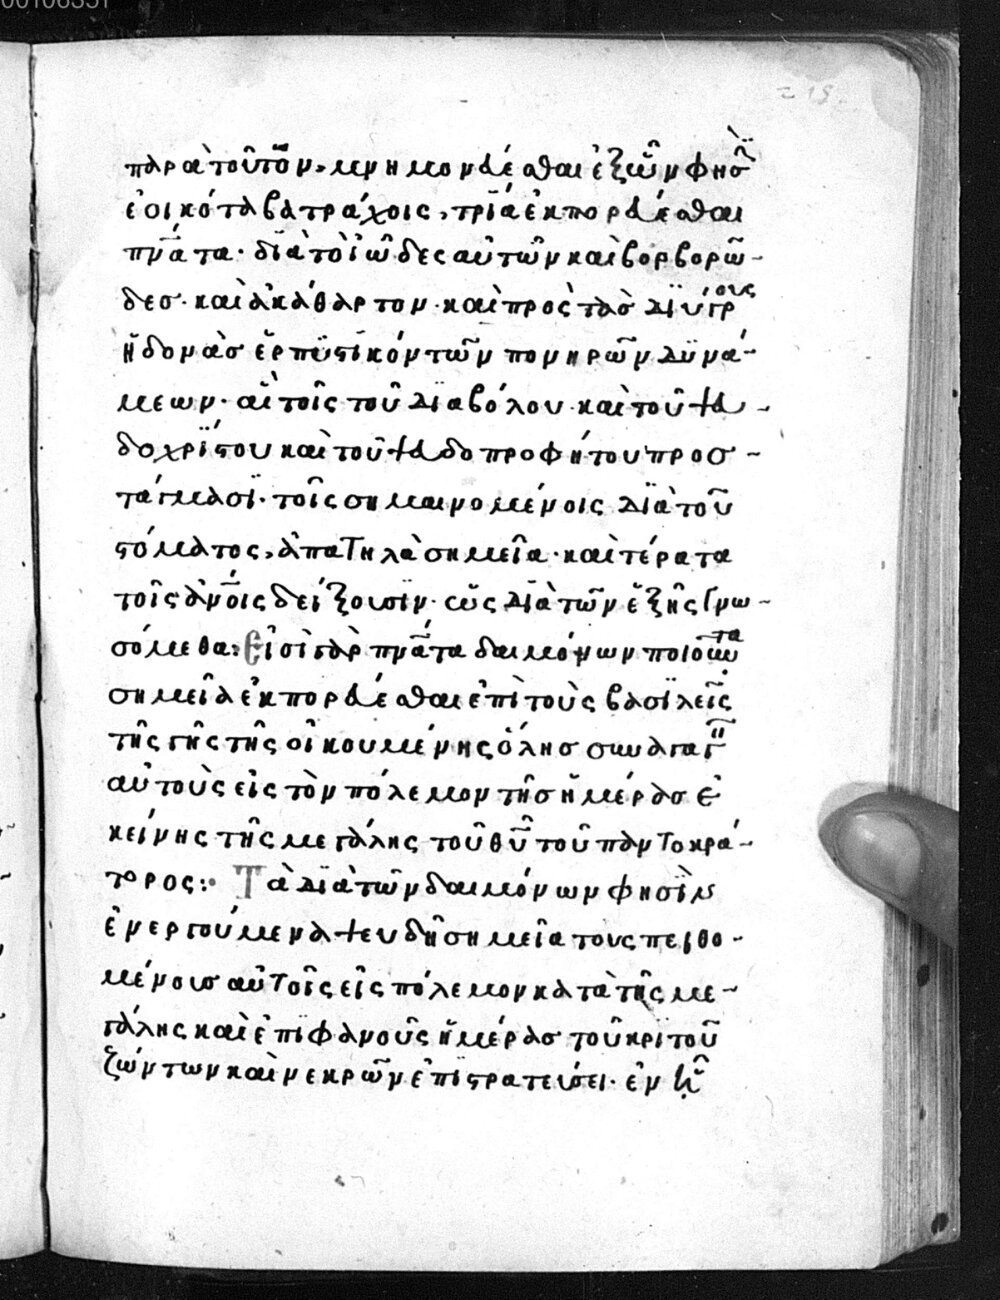 00106351
219
παρὰ τοῦτον, μνημονεύεσθαι ἐξ ὧν φησὶν
ἐοικότα βατράχοις, τρία ἐκπορεύεσθαι
πνα̅τα· διὰ τὸ ἰῶδες αὐτῶν καὶ βορβορῶ-
δεσ· καὶ ἀκάθαρτον· καὶ πρὸς τὰσ διύγρους
ἡδονὰσ ἑρπυστικὸν τῶν πονηρῶν δυνά-
μεων· αἳ τοῖς τοῦ διαβόλου· καὶ τοῦ ψευ-
δοχρίστου καὶ τοῦ ψευδοπροφήτου προσ-
τάγμασι· τοῖς σημαινομένοις διὰ τοῦ
στόματος, ἀπατηλὰ σημεῖα· καὶ τέρατα
τοῖς ἀνο̅ις δείξουσιν· ὡς διὰ τῶν ἑξῆς γνω-
σόμεθα: Εἰσὶ γὰρ πνα̅τα δαιμόνων ποιοῦντα
σημεῖα ἐκπορεύεσθαι ἐπὶ τοὺς βασιλεῖς
τῆς γῆς τῆς οἰκουμένης ὅλησ συναγαγεῖν
αὐτοὺς εἰς τὸν πόλεμον τῆσ ἡμέρασ ἐ
κείνης τῆς μεγάλης τοῦ θυ̅ τοῦ παντοκρά-
τορος: Τὰ διὰ τῶν δαιμόνων φησὶν
ἐνεργούμενα ψευδῆ σημεῖα τους πειθο-
μένουσ αὐτοῖς εἰς πόλεμον κατὰ τῆς με-
γάλης καὶ ἐπιφανοῦς ἡμέρασ τοῦ κριτοῦ
ζώντων καὶ νεκρῶν ἐπιστρατεύσει· ἐν ᾗ